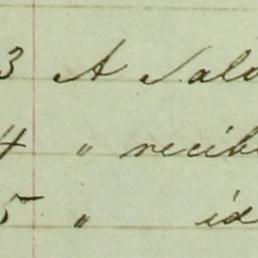 3 A Salo
4 " recib
5 " id